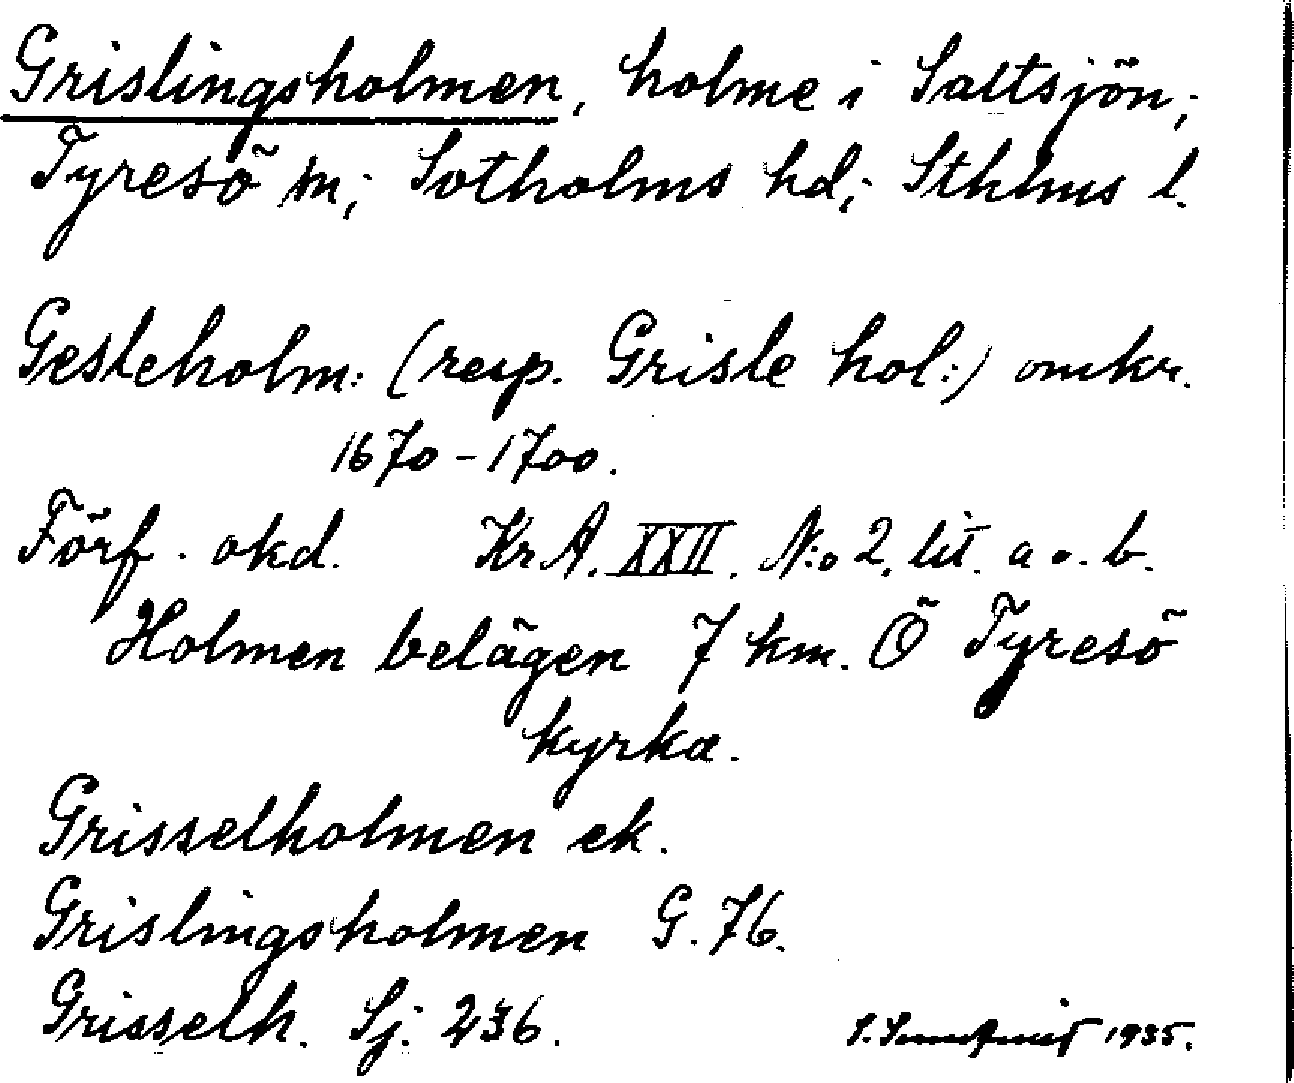 Grislingsholmen, holme i Saltsjön;
Tyresö sn; Sotholms hd; Sthlms l.
Gesleholm: (resp. Grisle hol:) omkr.
1670-1700.
Förf. okd. KrA. XXII. N:o 2. lit. a o. b.
Holmen belägen 7 km. Ö Tyresö
kyrka.
Grisselholmen ek.
Grislingsholmen G. 76.
Grisselh. Sj. 236.
1935.